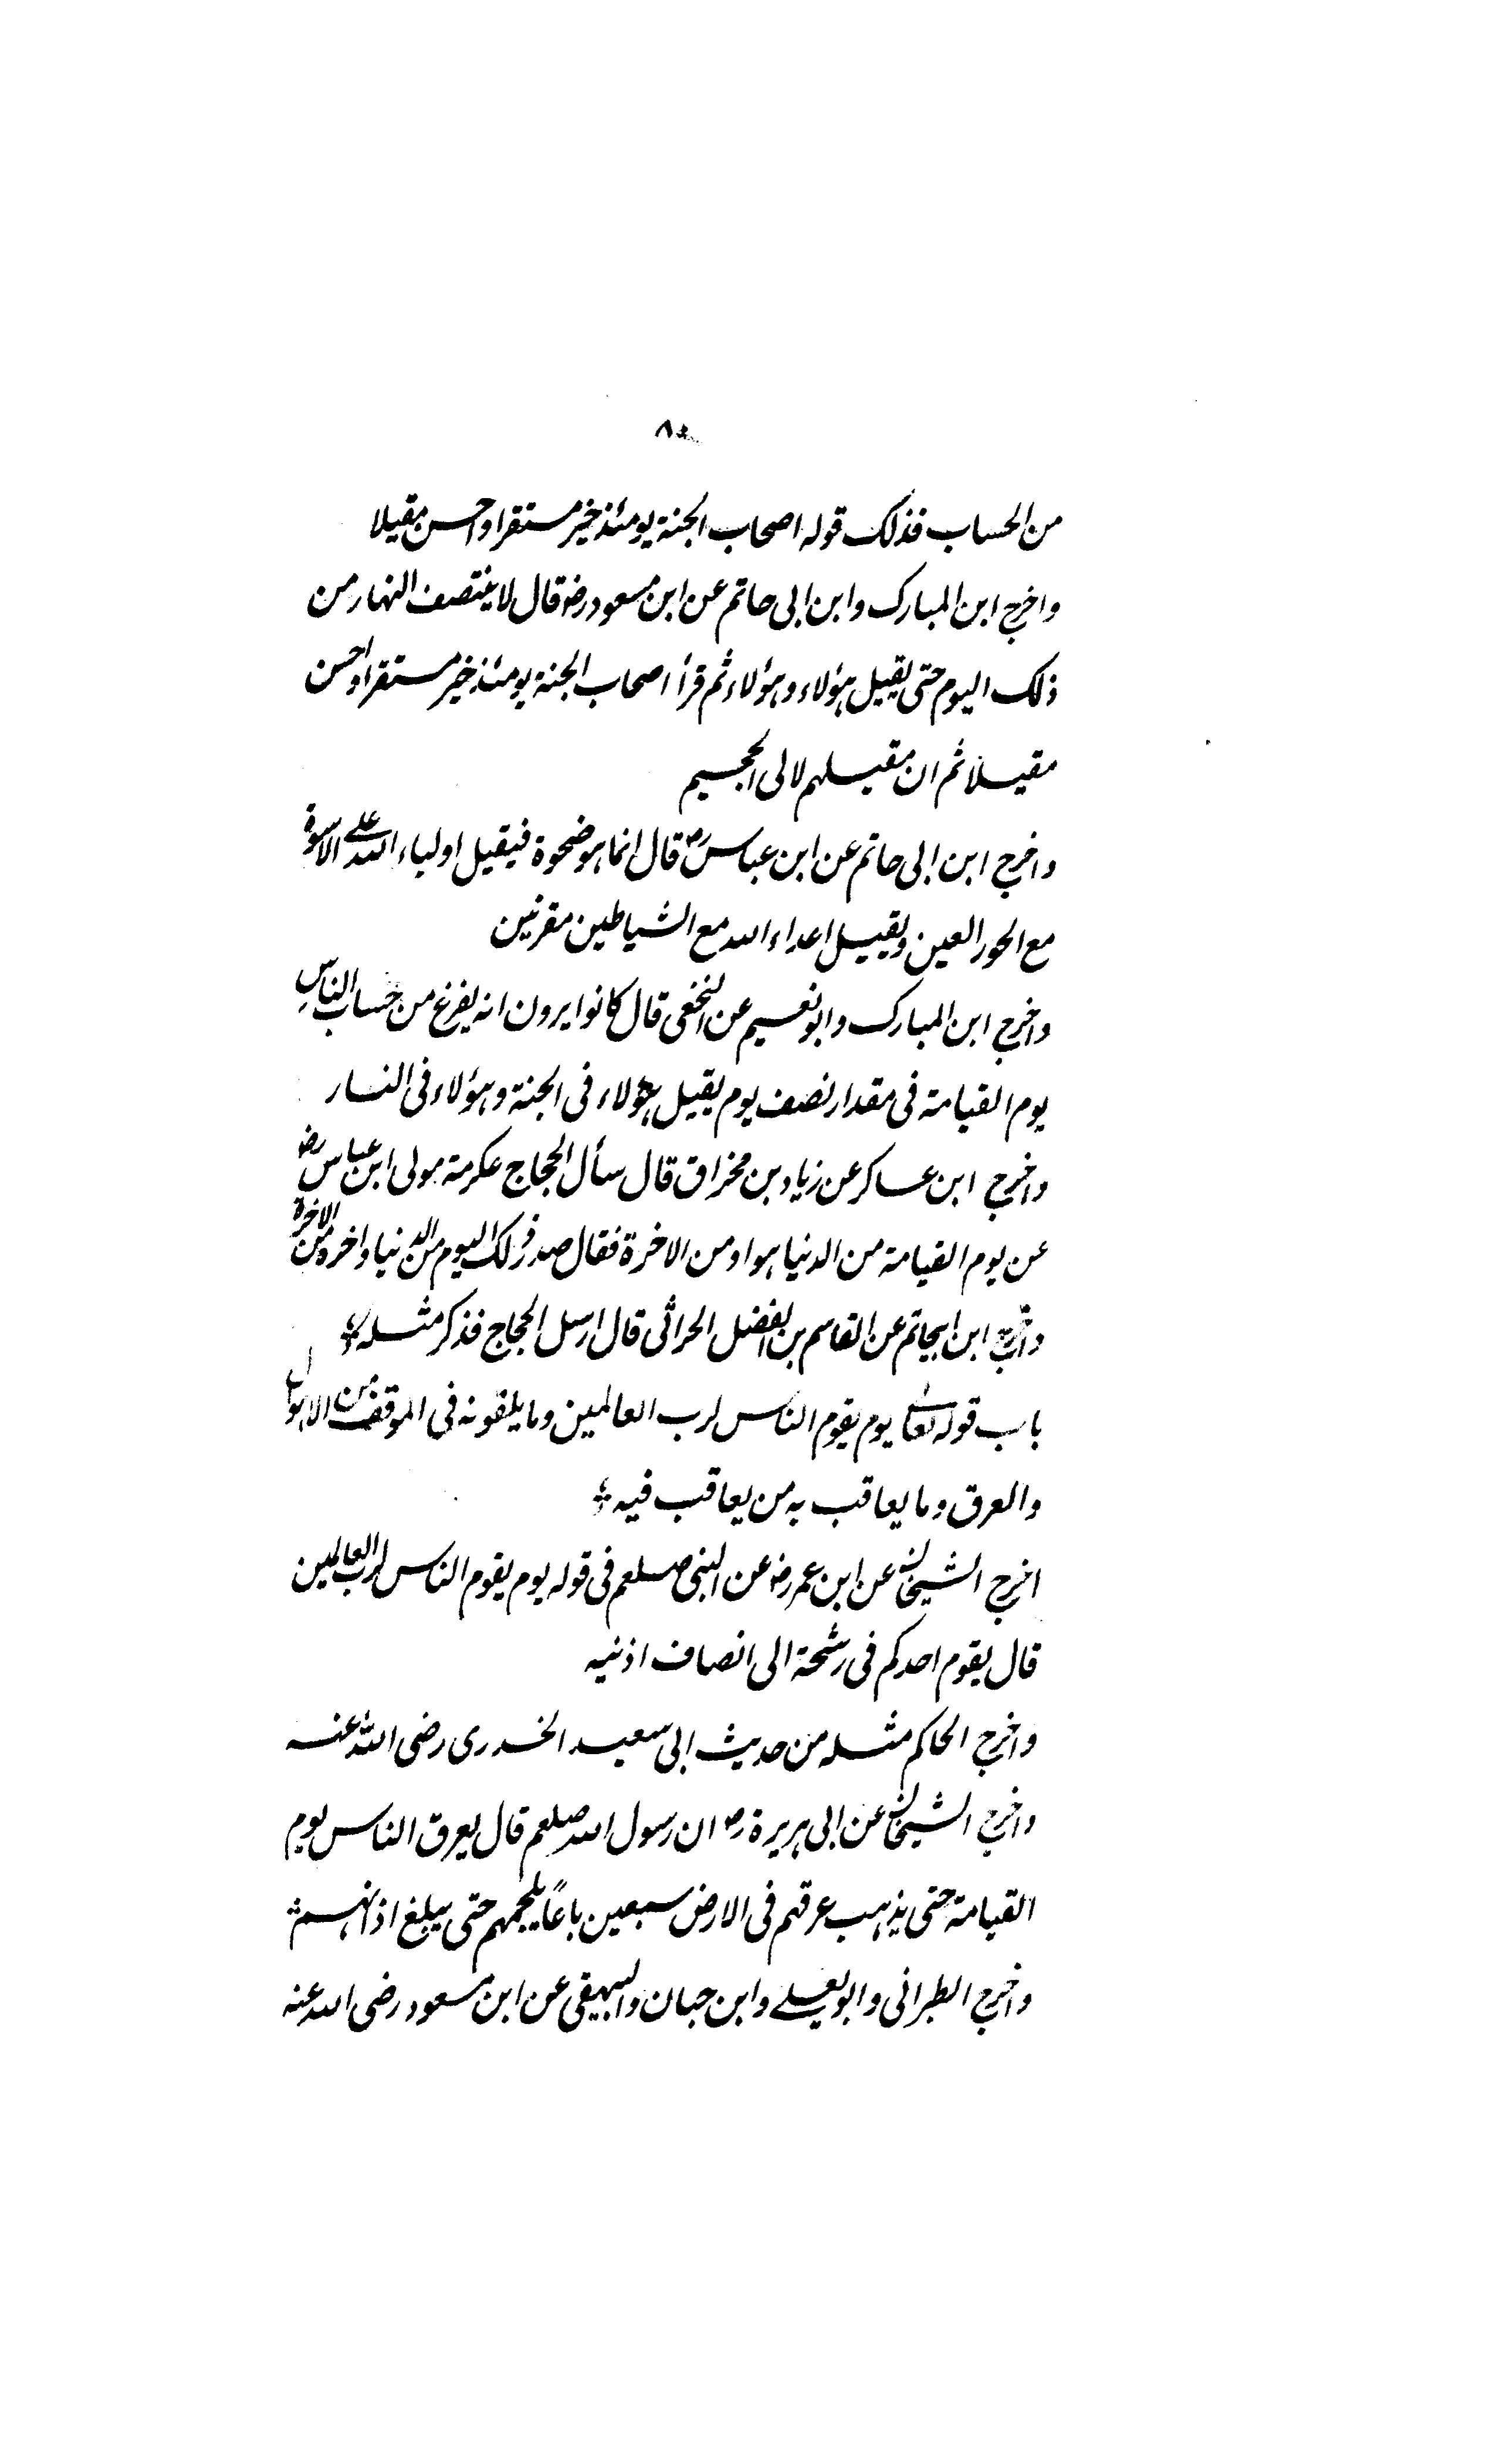 ٨٠
من الحساب فذلك قوله اصحاب الجنة يومئذ خير مستقرا واحسن مقيلا
واخرج ابن المبارك وابن ابى حاتم عن ابن مسعود رضـ قال لا ينتصف النهار من
ذلك اليوم حتى يقيل هؤلاء وهؤلاء ثم قرأ اصحاب الجنة يومئذ خير مستقرا واحسن
مقيلا ثم ان مقيلهم لالى الجحيم
واخرج ابن ابى حاتم عن ابن عباس رضـ قال انما هو ضحوة فيقيل اولياء الله على الاسرة
مع الحور العين ويقيل اعداء الله مع الشياطين مقرنين
واخرج ابن المبارك وابو نعيم عن النخعى قال كانوا يرون انه يفرغ من حساب الناس
يوم القيامة فى مقدار نصف يوم يقيل هؤلاء فى الجنة وهؤلاء فى النار
واخرج ابن عساكر عن زياد بن مخراق قال سأل الحجاج عكرمة مولى ابن عباس رضـ
عن يوم القيامة من الدنيا هو او من الاخرة فقال صدر ذلك اليوم من الدنيا واخره من الاخرة
واخرج ابن ابيحاتم عن القاسم بن الفضل الحرائى قال ارسل الحجاج فذكر مثله
باب قوله تعالى يوم يقوم الناس لرب العالمين وما يلقونه فى الموقف من الاهوال
والعرق وما يعاقب به من يعاقب فيه
اخرج الشيخان عن ابن عمر رضـ عن النبى صلعم فى قوله يوم يقوم الناس لرب العالمين
قال يقوم احدكم فى رشحة الى انصاف اذنيه
واخرج الحاكم مثله من حديث ابى سعيد الخدرى رضى الله عنه
واخرج الشيخان عن ابى هريرة رضـ ان رسول الله صلعم قال يعرق الناس يوم
القيامة حتى يذهب عرقهم فى الارض سبعين باعًا يلجمهم حتى يبلغ اذانهم
واخرج الطبرانى وابو يعلى وابن حبان والبيهقى عن ابن مسعود رضى الله عنه